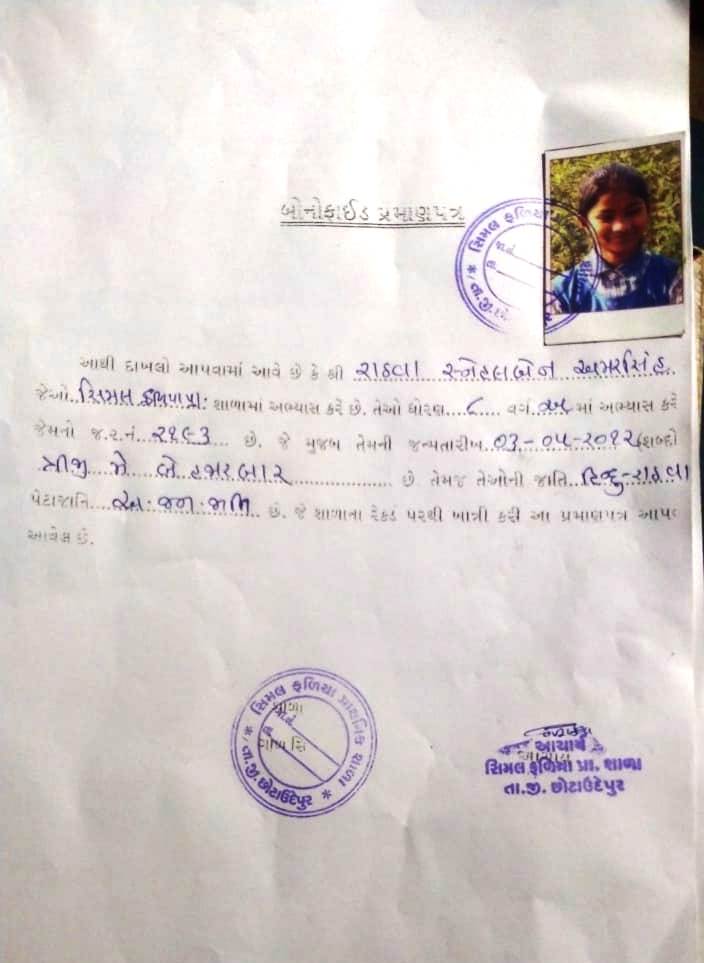 બોનોફાઈડ પ્રમાણપત્ર
સિમલ ફળિયા
તા.જી.છો
આથી દાખલો આપવામાં આવે છે કે શ્રી રાઠવા સ્નેહલબેન અમરસિંહ
જેઓ સિમલ ફળિયા પ્રા. શાળામાં અભ્યાસ કરે છે. તેઓ ધોરણ ૮ વર્ગ અ માં અભ્યાસ કરે
જેમનો જ.ર.નં. ૨૧૯૩ છે. જે મુજબ તેમની જન્મતારીખ 03-૦૫-૨૦૧૨ (શબ્દો
ત્રીજી મે બે હજાર બાર છે તેમજ તેઓની જાતિ હિન્દુ-રાઠવા
પેટાજાતિ અ.જન.જાતિ છે. જે શાળાના રેકર્ડ પરથી ખાત્રી કરી આ પ્રમાણપત્ર આપવ
આવેલ છે.
* સિમલ ફળિયા પ્રાથમિક શાળા *
તા.જી.છોટાઉદેપુર
આચાર્ય
સિમલ ફળિયા પ્રા. શાળા
તા.જી. છોટાઉદેપુર